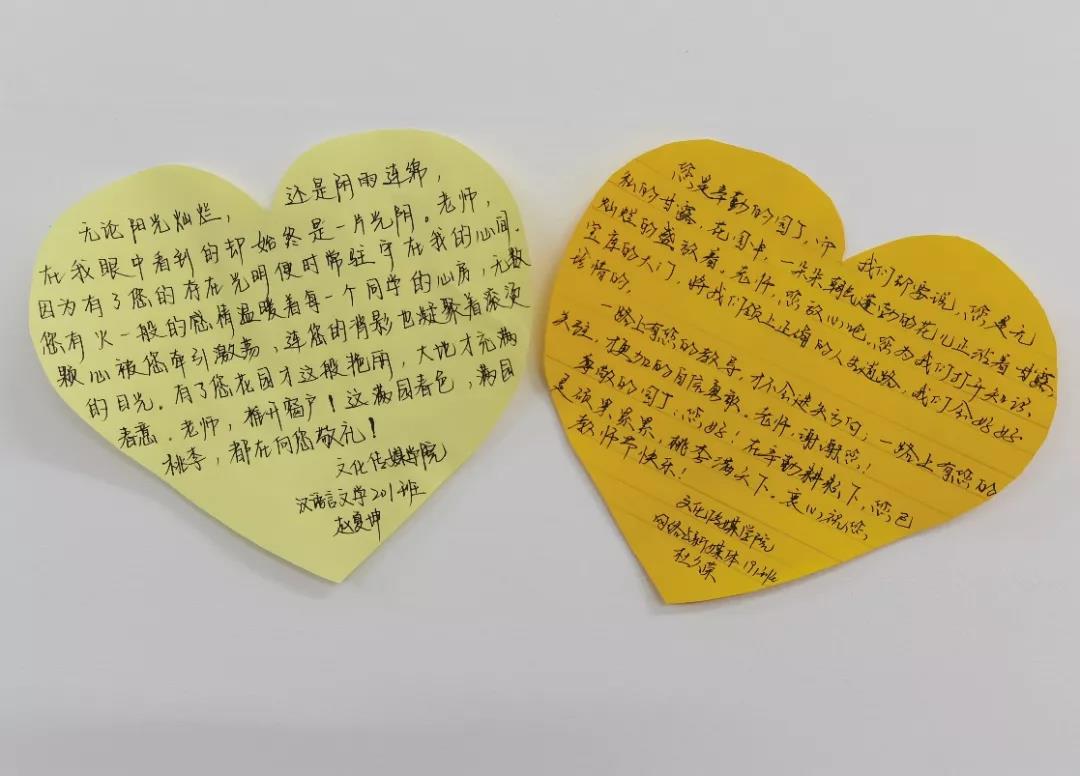 无论阳光灿烂， 还是阴雨连绵，
在我眼中看到的却始终是一片光阴。老师，
因为有了您的存在光明便时常驻守在我的心间。
您有火一般的感情温暖着每一个同学的心房，无数
颗心被您牵引激荡，连您的背影也凝聚着滚烫
的目光。有了您花园才这般艳丽，大地才充满
春意。老师，推开窗户！这满园春色，满园
桃李，都在向您敬礼！
文化传媒学院
汉语言文学201班
赵夏坤
您是辛勤的园丁，而 我们却要说，您是无
私的甘露。花园中，一朵朵朝气蓬勃的花儿正沿着甘露
灿烂的盛放着。老师，您放心吧，您为我们打开知识
宝库的大门，将我们领上正确的人生道路，我们会好好
珍惜的。
一路上有您的教导，才不会迷失方向，一路上有您的
关注，更加的自信勇敢。老师，谢谢您！
尊敬的园丁、您好！在辛勤耕耘下，您已
是硕果累累，桃李满天下。衷心祝您，
教师节快乐！
文化传媒学院
网络与新媒体191班
杜久荣